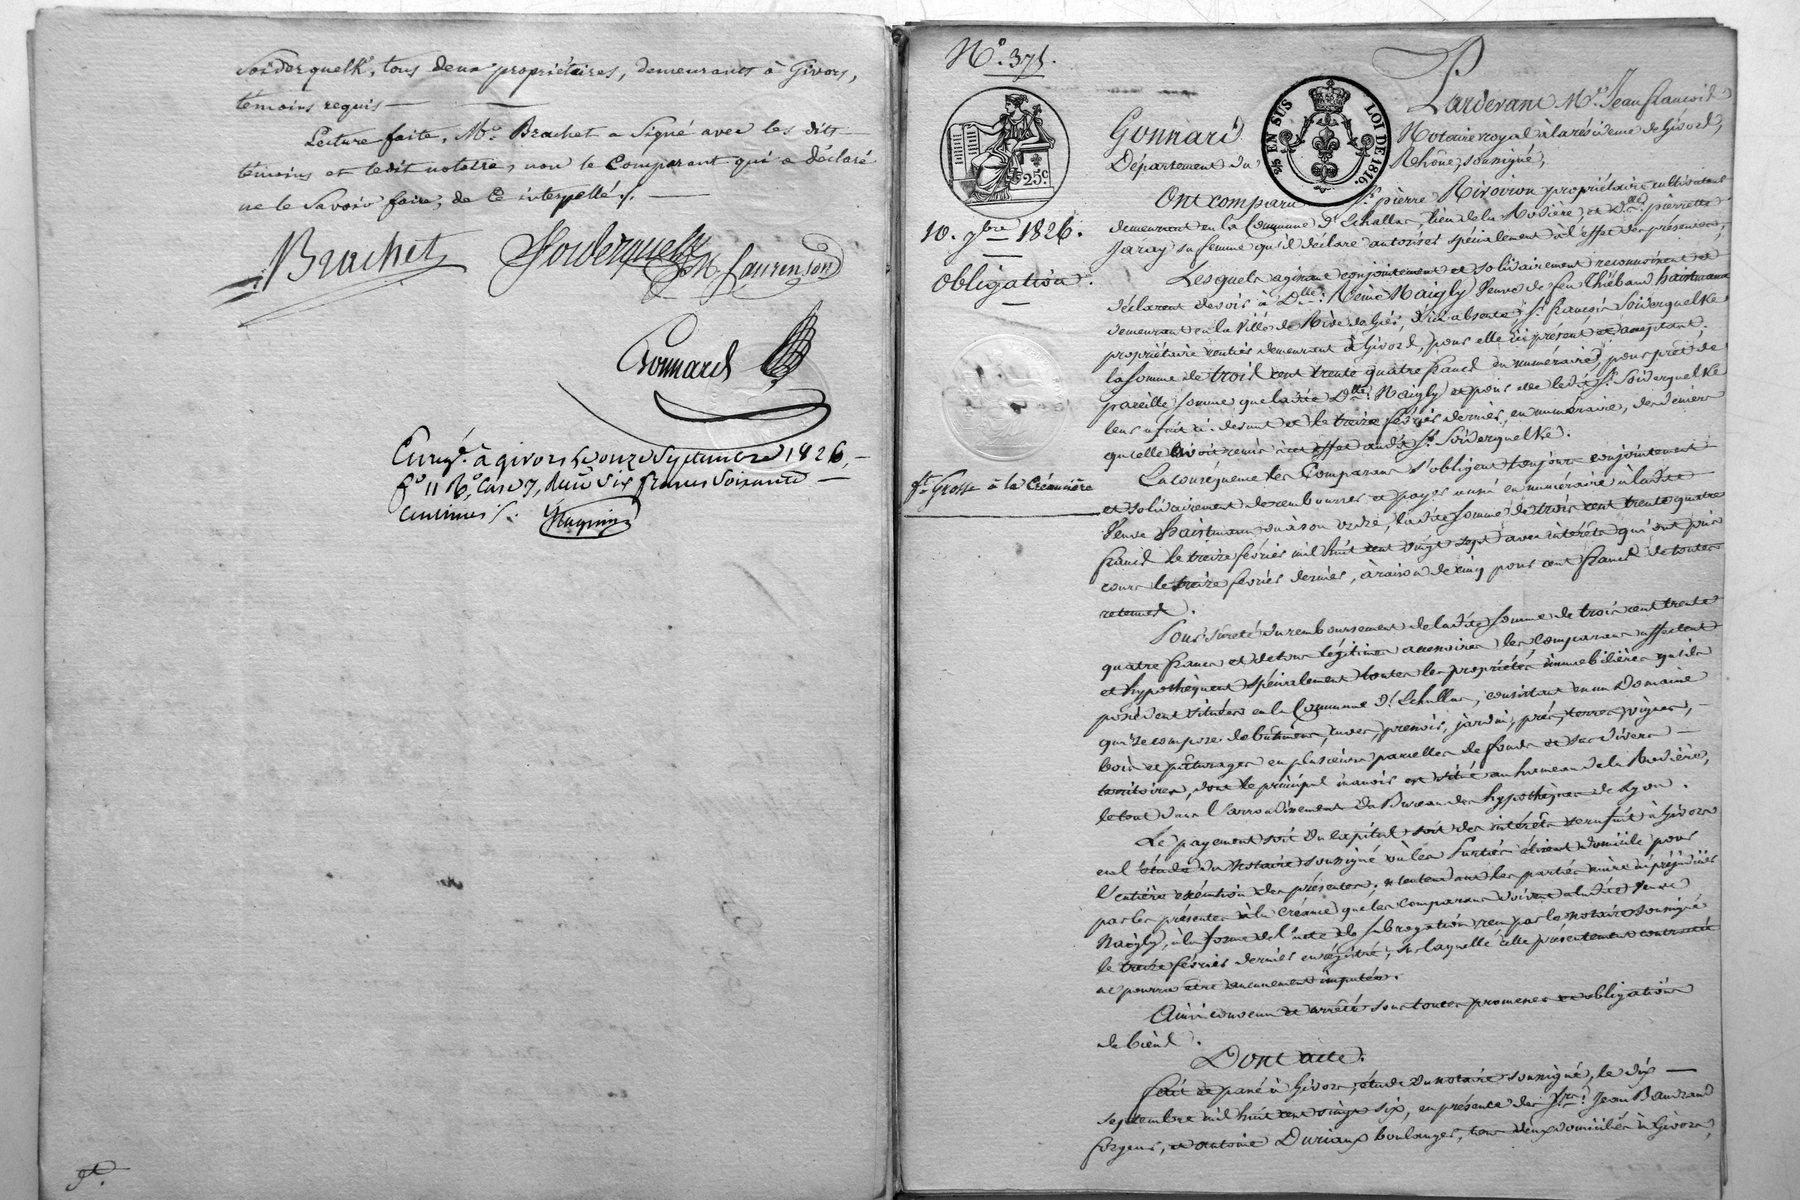 Soiderquelk, tous deux propriétaires, demeurants à Givors,
témoins requis —
Lecture faite, Mr. Brachet a signé avec les dits
témoins et ledit notaire, non le Comparant qui a déclaré
ne le savoir faire, de ce interpellé ./. —
Brachet Soiderquelk Laurenson
Gonnard
Enregé. à givors le onze Septembre 1826, —
fo. 11 Ro. Case 7, Reçu six francs soixante —
centimes ./.
No. 371.
25 EN SUS
LOI DE 1816.
25c
10. 7bre 1826.
Obligation.
ft. Grosse à la Créancière
Pardevant Me. Jean françois
Gonnard Notaire royal à la résidence de Givors,
Département du Rhône, soussigné,
Ont comparu Sr. pierre Rivoiron propriétaire cultivateur
demeurant en la Commune d'Echallas lieu de la Rodière, et D.lle pierrette
Jaray sa femme qu'il déclare autoriser spécialement à l'effet des présentes,
Lesquels agissant conjointement et solidairement reconnoissent et
déclarent devoir à D.lle Reine Naigly Veuve de feu Thiébaud haistmann
demeurant en la Ville de Rive de Gier, d'ici absente, Sr. françois Soiderquelke
propriétaire rentier demeurant à Givors, pour elle ici présent et acceptant.
la somme de trois cent trente quatre francs en numéraire, pour prêt de
pareille somme que ladite D.lle Naigly et pour elle ledit Sr. Soiderquelke
leur a fait ci-devant et le treize février dernier, en numéraire, de deniers
qu'elle avoit remis à cet effet audit Sr. Soiderquelke.
En conséquence les Comparans s'obligent toujours conjointement
et solidairement de rembourser et payer aussi en numéraire à ladite
Veuve haistmann ou à son ordre, ladite somme de trois cent trente quatre
francs le treize février mil huit cent vingt sept, avec intérêts qui ont pris
cours le treize février dernier, à raison de cinq pour cent francs de toutes
retenues.
Pour sûreté du remboursement de ladite somme de trois cent trente
quatre francs et de tous légitimes accessoires les comparans affectent
et hypothèquent spécialement toutes les propriétés immobilières qu'ils
possèdent situées en la Commune d'Echallas, consistant en un Domaine
qui se compose de bâtimens, cuves, pressoir, jardin, prés, terres, vignes, —
bois et pâturages en plusieurs parcelles de fonds et sur divers —
territoires, dont le principal manoir est situé au hameau de la Rodière,
le tout dans l'arrondissement du Bureau des hypothèques de Lyon.
Le payement soit du capital soit des intérêts sera fait à Givors
en l'étude du Notaire soussigné où les Parties élisent domicile pour
l'entière exécution des présentes; n'entendant les parties nuire ni préjudicier
par les présentes à la créance que les comparans doivent à ladite Veuve
Naigly, à la forme de l'acte de subrogation reçu par le notaire soussigné
le treize février dernier enrégistré, sur laquelle celle présentement contractée
ne pourra être aucunement imputée.
Ainsi convenu et arrêté sous toutes promesses et obligations
de biens.
Dont acte.
fait et passé à Givors, étude du notaire soussigné, le dix —
septembre mil huit cent vingt six, en présence des Srs. Jean Baudrand
forgeur, et antoine Duriaux boulanger, tous deux domiciliés à Givors,